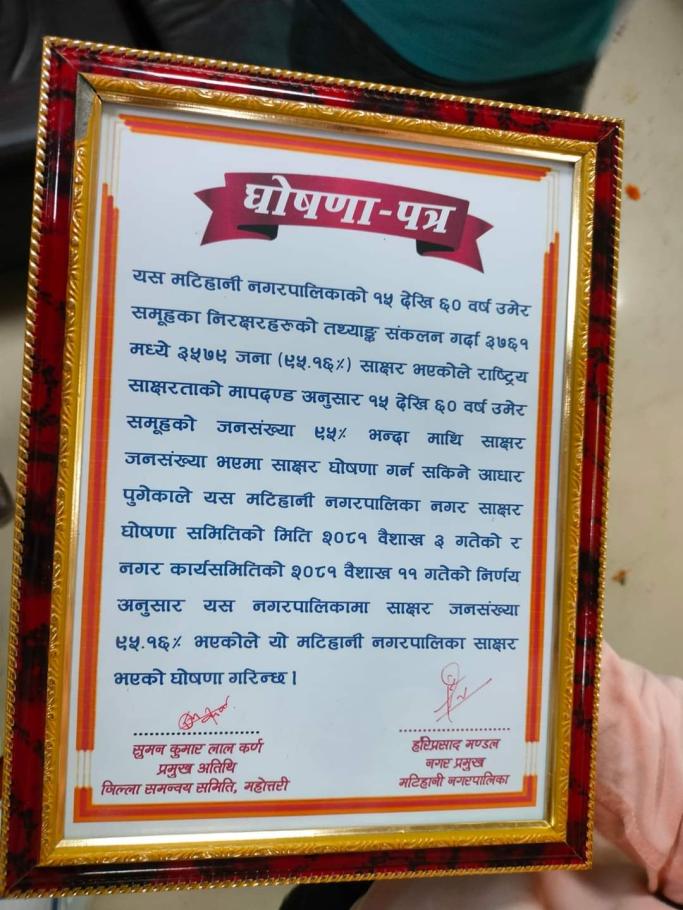 घोषणा-पत्र
यस मटिहानी नगरपालिकाको १५ देखि ६० वर्ष उमेर
समूहका निरक्षरहरुको तथ्याङ्क संकलन गर्दा ३७६१
मध्ये ३५७९ जना (९५.१६%) साक्षर भएकोले राष्ट्रिय
साक्षरताको मापदण्ड अनुसार १५ देखि ६० वर्ष उमेर
समूहको जनसंख्या ९५% भन्दा माथि साक्षर
जनसंख्या भएमा साक्षर घोषणा गर्न सकिने आधार
पुगेकाले यस मटिहानी नगरपालिका नगर साक्षर
घोषणा समितिको मिति २०८१ वैशाख ३ गतेको र
नगर कार्यसमितिको २०८१ वैशाख ११ गतेको निर्णय
अनुसार यस नगरपालिकामा साक्षर जनसंख्या
९५.१६% भएकोले यो मटिहानी नगरपालिका साक्षर
भएको घोषणा गरिन्छ।
सुमन कुमार लाल कर्ण
प्रमुख अतिथि
जिल्ला समन्वय समिति, महोत्तरी
हरिप्रसाद मण्डल
नगर प्रमुख
मटिहानी नगरपालिका